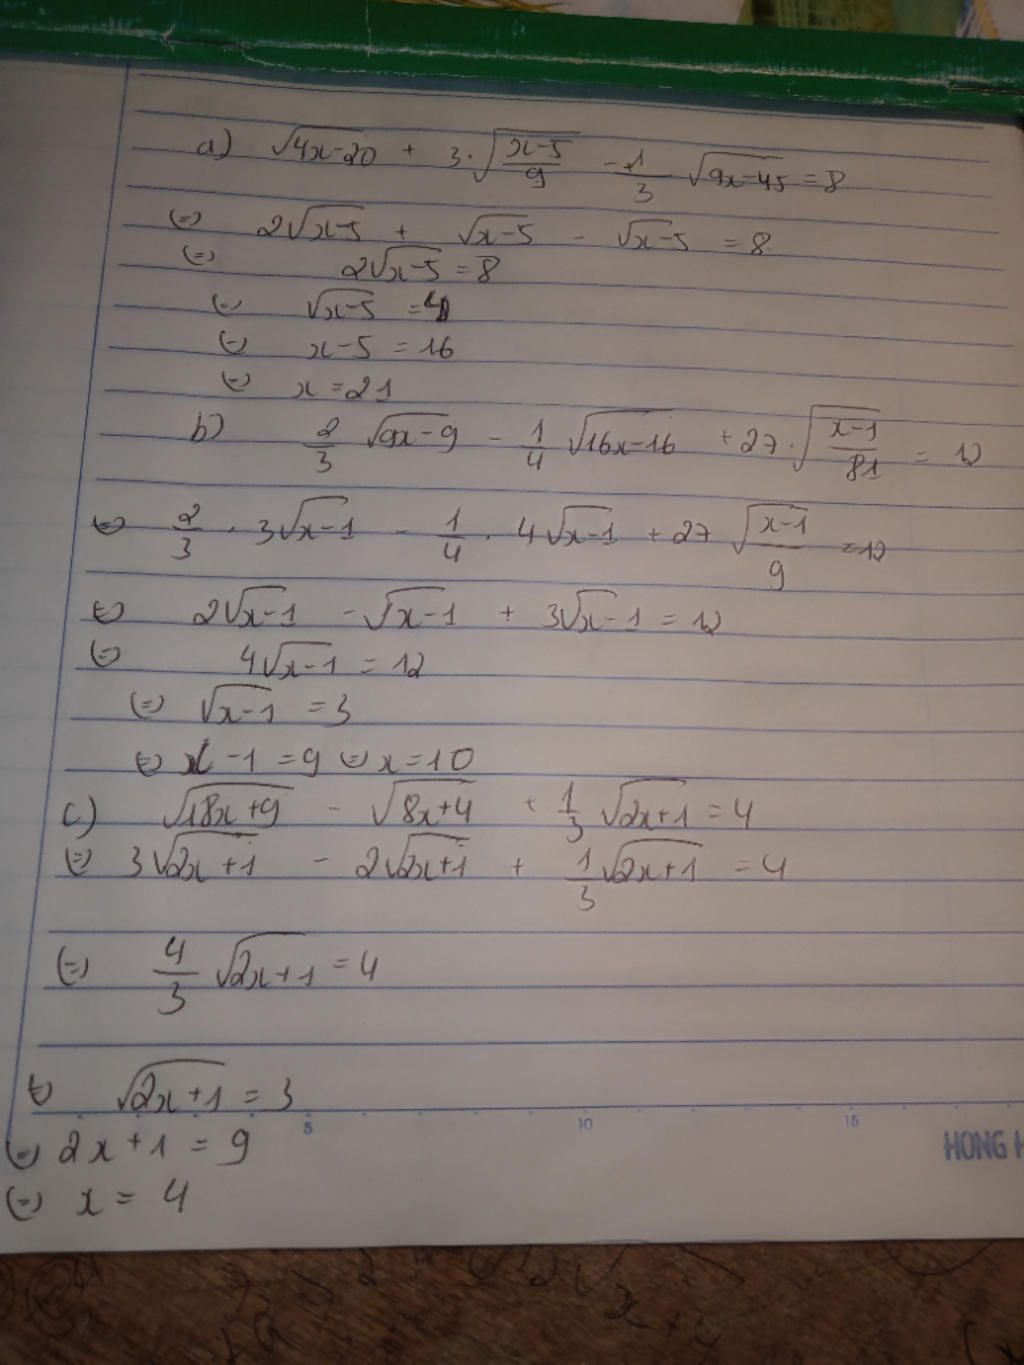 a) √(4x-20) + 3.√((x-5)/9) - 1/3 √(9x-45) = 8
(=) 2√(x-5) + √(x-5) - √(x-5) = 8
(=) 2√(x-5) = 8
(=) √(x-5) = 4
(=) x-5 = 16
(=) x = 21
b) 2/3 √(9x-9) - 1/4 √(16x-16) + 27.√((x-1)/81) = 12
(=) 2/3 . 3√(x-1) - 1/4 . 4√(x-1) + 27 √(x-1)/9 = 12
(=) 2√(x-1) - √(x-1) + 3√(x-1) = 12
(=) 4√(x-1) = 12
(=) √(x-1) = 3
(=) x-1 = 9 (=) x = 10
c) √(18x+9) - √(8x+4) + 1/3 √(2x+1) = 4
(=) 3√(2x+1) - 2√(2x+1) + 1/3 √(2x+1) = 4
(=) 4/3 √(2x+1) = 4
(=) √(2x+1) = 3
5 10 15
(=) 2x+1 = 9
HONG H
(=) x = 4